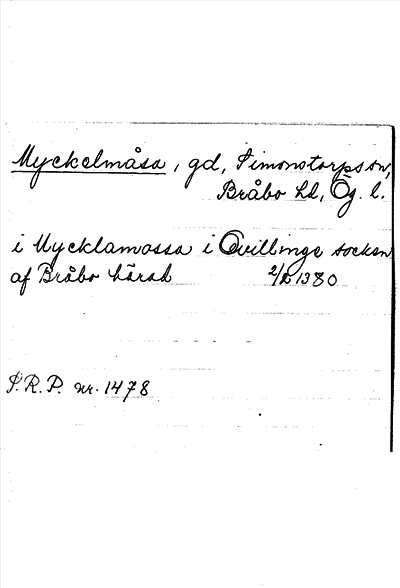 Myckelmåsa, gd, Simonstorps sn,
Bråbo hd, Ög. l.
i Mycklamossa i Qvillinge socken
af Bråbo härad 2/12 1380
S.R.P. nr. 1478